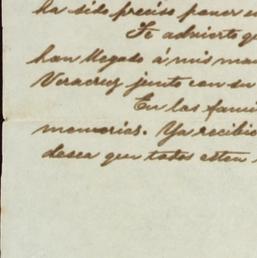 ha sido preciso poner e
Te advierto q
han llegado á mis ma
Veracruz junto con su
En las fami
memorias. Ya recibi
desea que todos esten